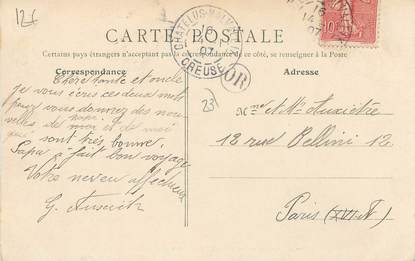 12€
CARTE POSTALE
Certains pays étrangers n'acceptant pas la correspondance de ce côté, se renseigner à la Poste
CHATELUS-MALVALEIX
07
CREUSE
OR
15
14
07
10
Correspondance
Adresse
Chère tante et oncle
Je vous écris ces deux mots
pour vous donnez des nou
velles de moi et de mémé
qui sont très bonne.
Papa a fait bon voyage
Votre neveu affectueux
G. Auxietre
23
Mme et Mr Auxietre
18 rue Bellini 12
Paris (XVI A)